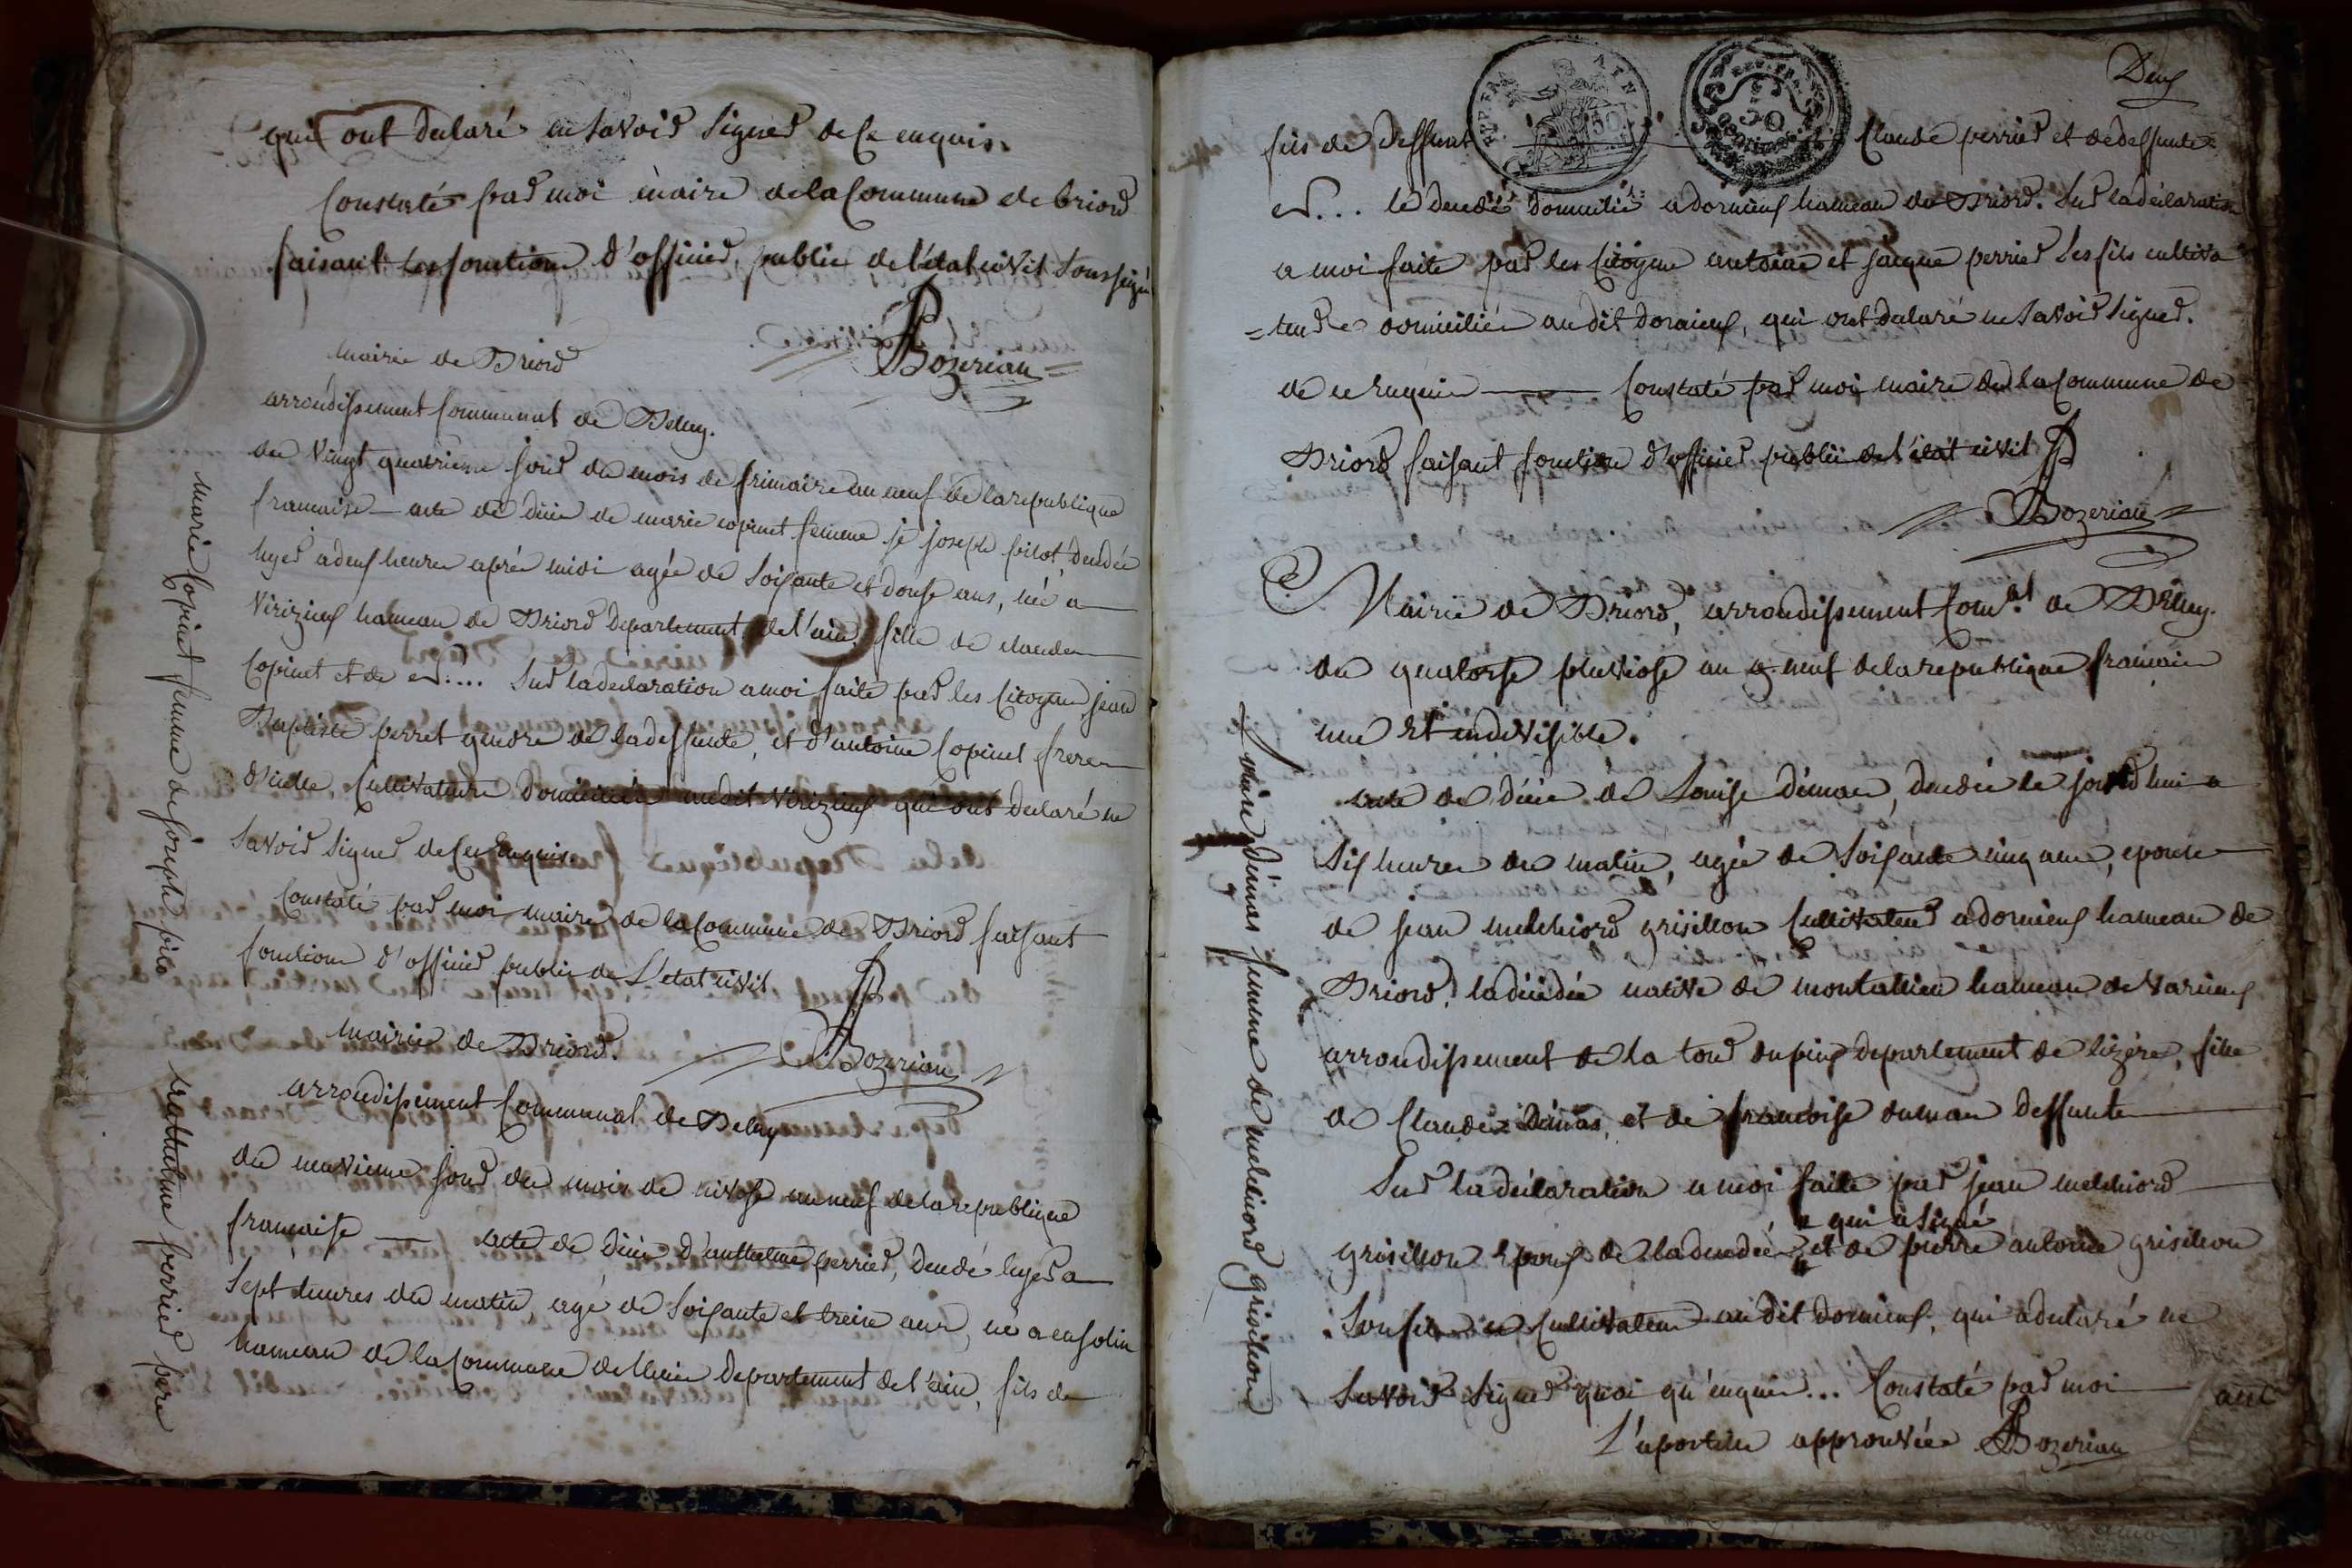 qui ont declaré ne savoir signer de ce enquis.
Constaté par moi maire de la Commune de briord
faisant les fonctions d'officier public de l'état civil soussigné
Bozerian
mairie de Briord
arrondissement Communal de Belley.
du vingt quatrieme jour du mois de frimaire an neuf de la republique
francaise — acte de décés de marie copinet femme de joseph pilot, decedée
hyer a deux heures aprés midi agée de soixante et douse ans, née a
Verizieux hameau de Briord Departement de l'ain, fille de claude
Copinet et de ed.... Sur la declaration a moi faite par les citoyens jean
Baptiste perret gendre de la deffunte, et d'antoine Copinet frere
d'icelle, Cultivateurs domiciliés audit Verizieux qui ont declaré ne
savoir signer de ce Enquis
Constaté par moi maire de la Commune de Briord faisant
fonctions d'officier public de L'etat civil
Bozerian
Mairie de Briord.
arrondissement Communal de Belley
du neuvieme jour du mois de nivose an neuf de la republique
francaise — acte de décés d'anthelme perrier, decedé hyer a
sept heures du matin, agé de soixante et treize ans, né a
hameau de la Commune de Departement de l'ain, fils de
marie Copinet femme de joseph pilo
anthelme perrier pere
Deux
fils de deffunt Claude perrier et de deffunte
ed... le decedé domicilié a dornieux hameau de Briord. Sur la déclaration
a moi faite par les citoyens antoine et jacque perrier ses fils cultiva
=teurs domiciliés au dit dornieux, qui ont declaré ne savoir signer.
de ce enquis — Constaté par moi maire de la Commune de
Briord faisant fonction d'officier public de l'état civil
Bozerian
Mairie de Briord, arrondissement Com.al de Belley.
du quatorse pluviose an 9. neuf de la republique francaise
une et indivisible.
acte de décés de Louise démas, decedée le jourd'hui a
six heures du matin, agée de soixante cinq ans, epouse
de jean melchiord grisillon Cultivateur a dornieux hameau de
Briord, la décédée native de montalieu hameau de Varcieux
arrondissement de la tour dupin departement de lizére, fille
de Claude démas, et de francoise dumas deffunte
Sur la déclaration a moi faite par jean melchiord
qui a signé
grisillon Epoux de la decedée, et de pierre antoine grisillon
Son fils Cultivateur au dit dornieux, qui a declaré ne
savoir signer quoi qu'enquis... Constaté par moi
L'apostille approuvée Bozerian
démas femme de melchiord grisillon
50
REP. FRA.
50